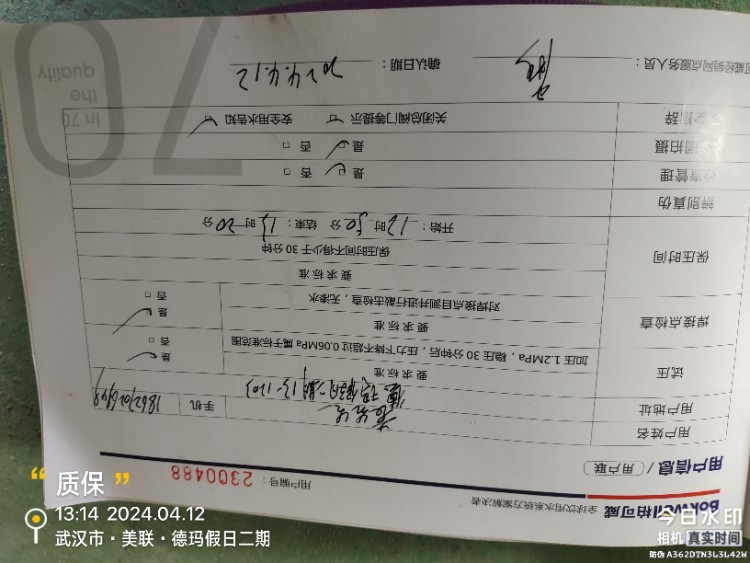 Bokwell柏可威 全球饮用水系统方案解决者
用户信息 / 用户联
用户编号: 2300488
用户姓名
用户地址
手机
试压
要求标准
加压1.2MPa,稳压30分钟后,压力下降不超过0.06MPa属于标准范围
是
否
焊接点检查
要求标准
对焊接点目测并进行敲击检查,无渗水
是
否
保压时间
要求标准
保压时间不得少于30分钟
开始: 12时50分 结束: 13时20分
辨别真伪
检查管理
是 否
拍摄
是 否
关闭总阀门等提示 安全用水告知
可威经销网点服务人员:
确认日期: 2024.4.12
70
in 70
the
quality
“质保”
13:14 2024.04.12
武汉市·美联·德玛假日二期
今日水印
相机 真实时间
防伪 A362DTN3L3L42W